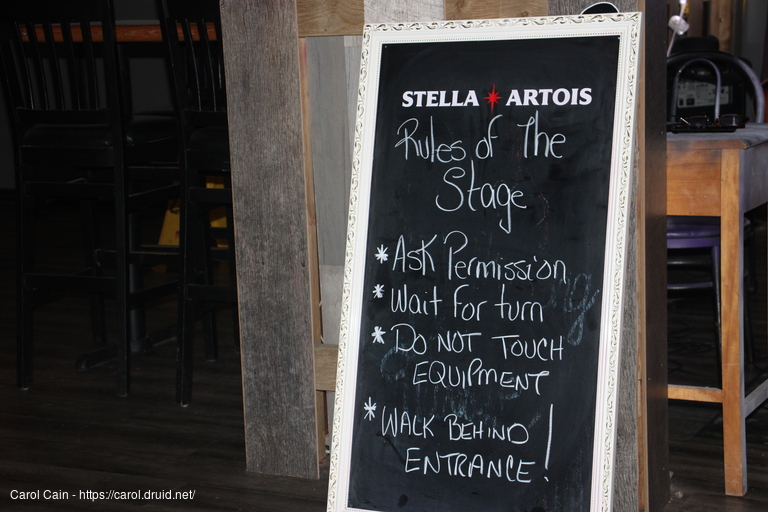 STELLA ARTOIS
Rules of The
Stage
* Ask Permission
* Wait for turn
* DO NOT TOUCH
EQUIPMENT
* WALK BEHIND
ENTRANCE!
Carol Cain - https://carol.druid.net/